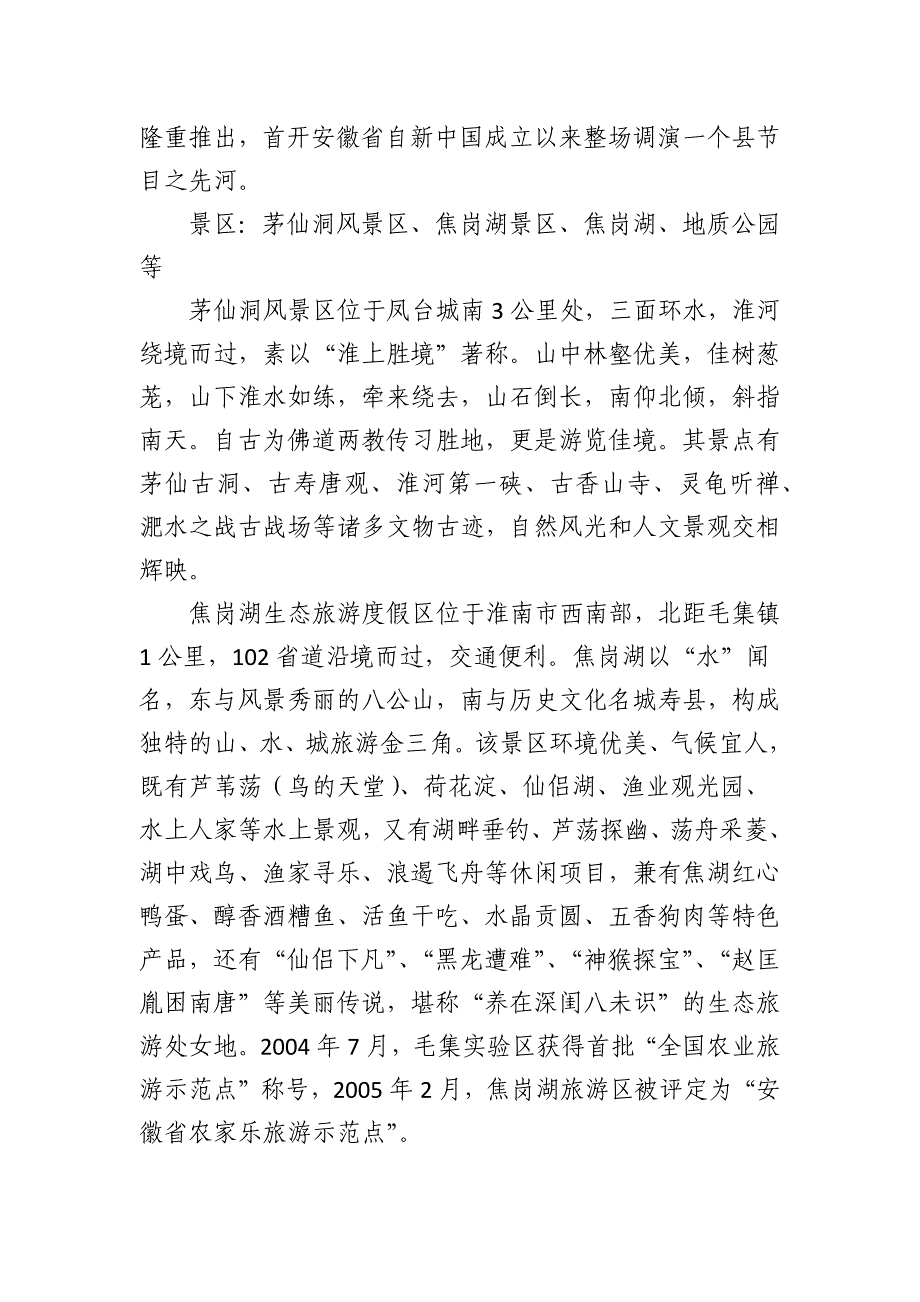 隆重推出，首开安徽省自新中国成立以来整场调演一个县节
目之先河。
景区：茅仙洞风景区、焦岗湖景区、焦岗湖、地质公园
等
茅仙洞风景区位于凤台城南 3 公里处，三面环水，淮河
绕境而过，素以“淮上胜境”著称。山中林壑优美，佳树葱
茏，山下淮水如练，牵来绕去，山石倒长，南仰北倾，斜指
南天。自古为佛道两教传习胜地，更是游览佳境。其景点有
茅仙古洞、古寿唐观、淮河第一硖、古香山寺、灵龟听禅、
淝水之战古战场等诸多文物古迹，自然风光和人文景观交相
辉映。
焦岗湖生态旅游度假区位于淮南市西南部，北距毛集镇
1 公里，102 省道沿境而过，交通便利。焦岗湖以“水”闻
名，东与风景秀丽的八公山，南与历史文化名城寿县，构成
独特的山、水、城旅游金三角。该景区环境优美、气候宜人，
既有芦苇荡（鸟的天堂）、荷花淀、仙侣湖、渔业观光园、
水上人家等水上景观，又有湖畔垂钓、芦荡探幽、荡舟采菱、
湖中戏鸟、渔家寻乐、浪遏飞舟等休闲项目，兼有焦湖红心
鸭蛋、醇香酒糟鱼、活鱼干吃、水晶贡圆、五香狗肉等特色
产品，还有“仙侣下凡”、“黑龙遭难”、“神猴探宝”、“赵匡
胤困南唐”等美丽传说，堪称“养在深闺八未识”的生态旅
游处女地。2004 年 7 月，毛集实验区获得首批“全国农业旅
游示范点”称号，2005 年 2 月，焦岗湖旅游区被评定为“安
徽省农家乐旅游示范点”。